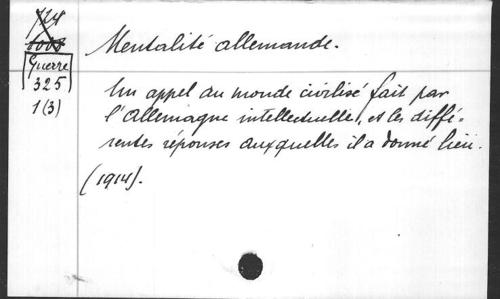 Mentalité allemande.
Guerre
325
1(3)
Un appel au monde civilisé fait par
l'Allemagne intellectuelle, et les diffé-
rentes réponses auxquelles il a donné lieu.
(1914).